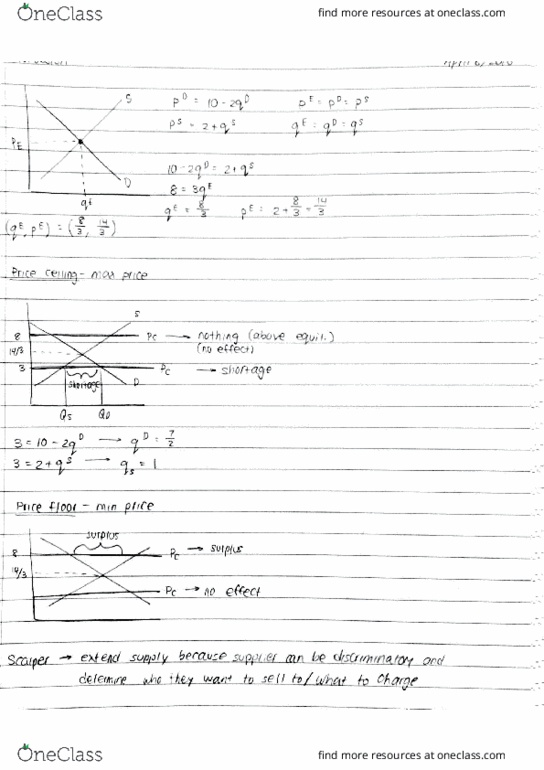 OneClass
find more resources at oneclass.com
S
p^D = 10 - 2q^D
p^E = p^D = p^S
p^S = 2 + q^S
q^E = q^D = q^S
P_E
10 - 2q^D = 2 + q^S
8 = 3q^E
D
q^E = 8/3
p^E = 2 + 8/3 = 14/3
(q^E, p^E) = (8/3, 14/3)
Price ceiling - max price
S
8
Pc → nothing (above equil.)
14/3
(no effect)
3
Pc → shortage
shortage
D
Qs
QD
3 = 10 - 2q^D → q^D = 7/2
3 = 2 + q^S → q_s = 1
Price floor - min price
surplus
8
Pc → surplus
14/3
Pc → no effect
Scalper → extend supply because supplier can be discriminatory and
determine who they want to sell to/what to charge
OneClass
find more resources at oneclass.com